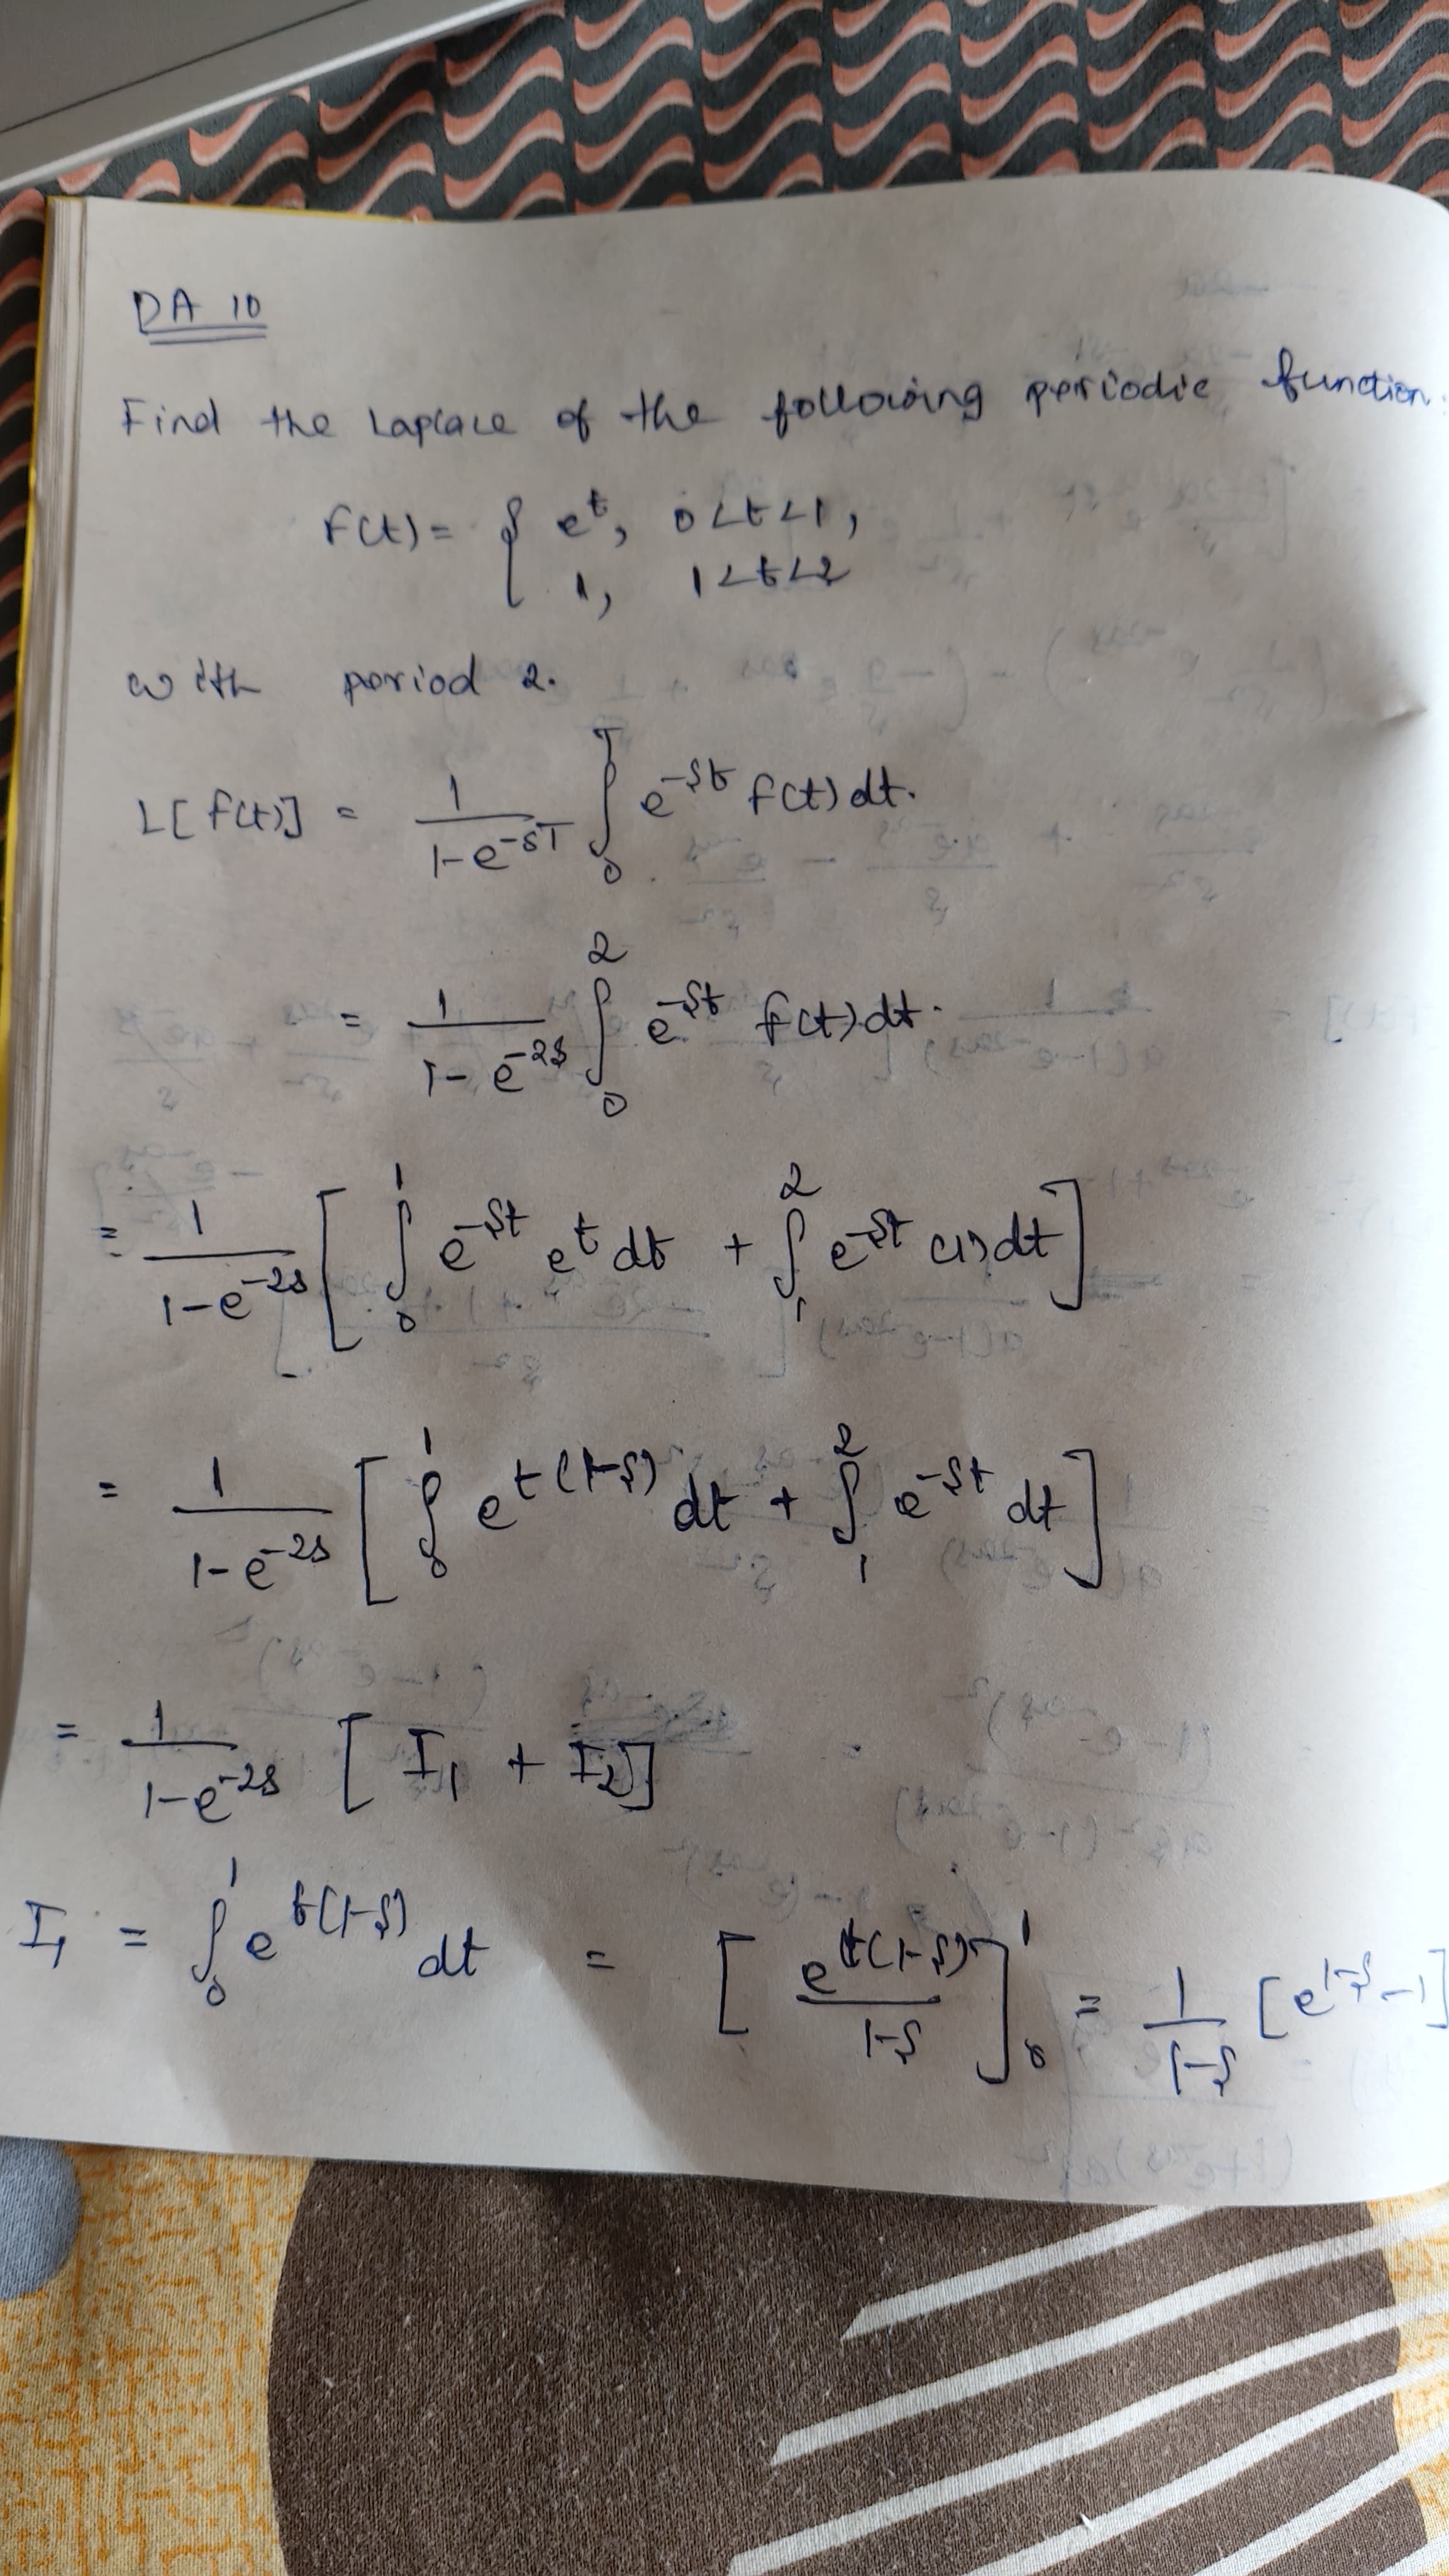 DA 10
Find the Laplace of the following periodic function.
F(t) = { e^t, 0<t<1,
1, 1<t<2
with period 2.
L[f(t)] = 1/(1-e^-sT) ∫_0^T e^-st f(t) dt.
= 1/(1-e^-2s) ∫_0^2 e^-st f(t) dt.
= 1/(1-e^-2s) [ ∫_0^1 e^-st e^t dt + ∫_1^2 e^-st (1) dt ]
= 1/(1-e^-2s) [ ∫_0^1 e^t(1-s) dt + ∫_1^2 e^-st dt ]
= 1/(1-e^-2s) [ I₁ + I₂ ]
I₁ = ∫_0^1 e^t(1-s) dt = [ e^t(1-s)/(1-s) ]_0^1 = 1/(1-s) [e^1-s - 1]